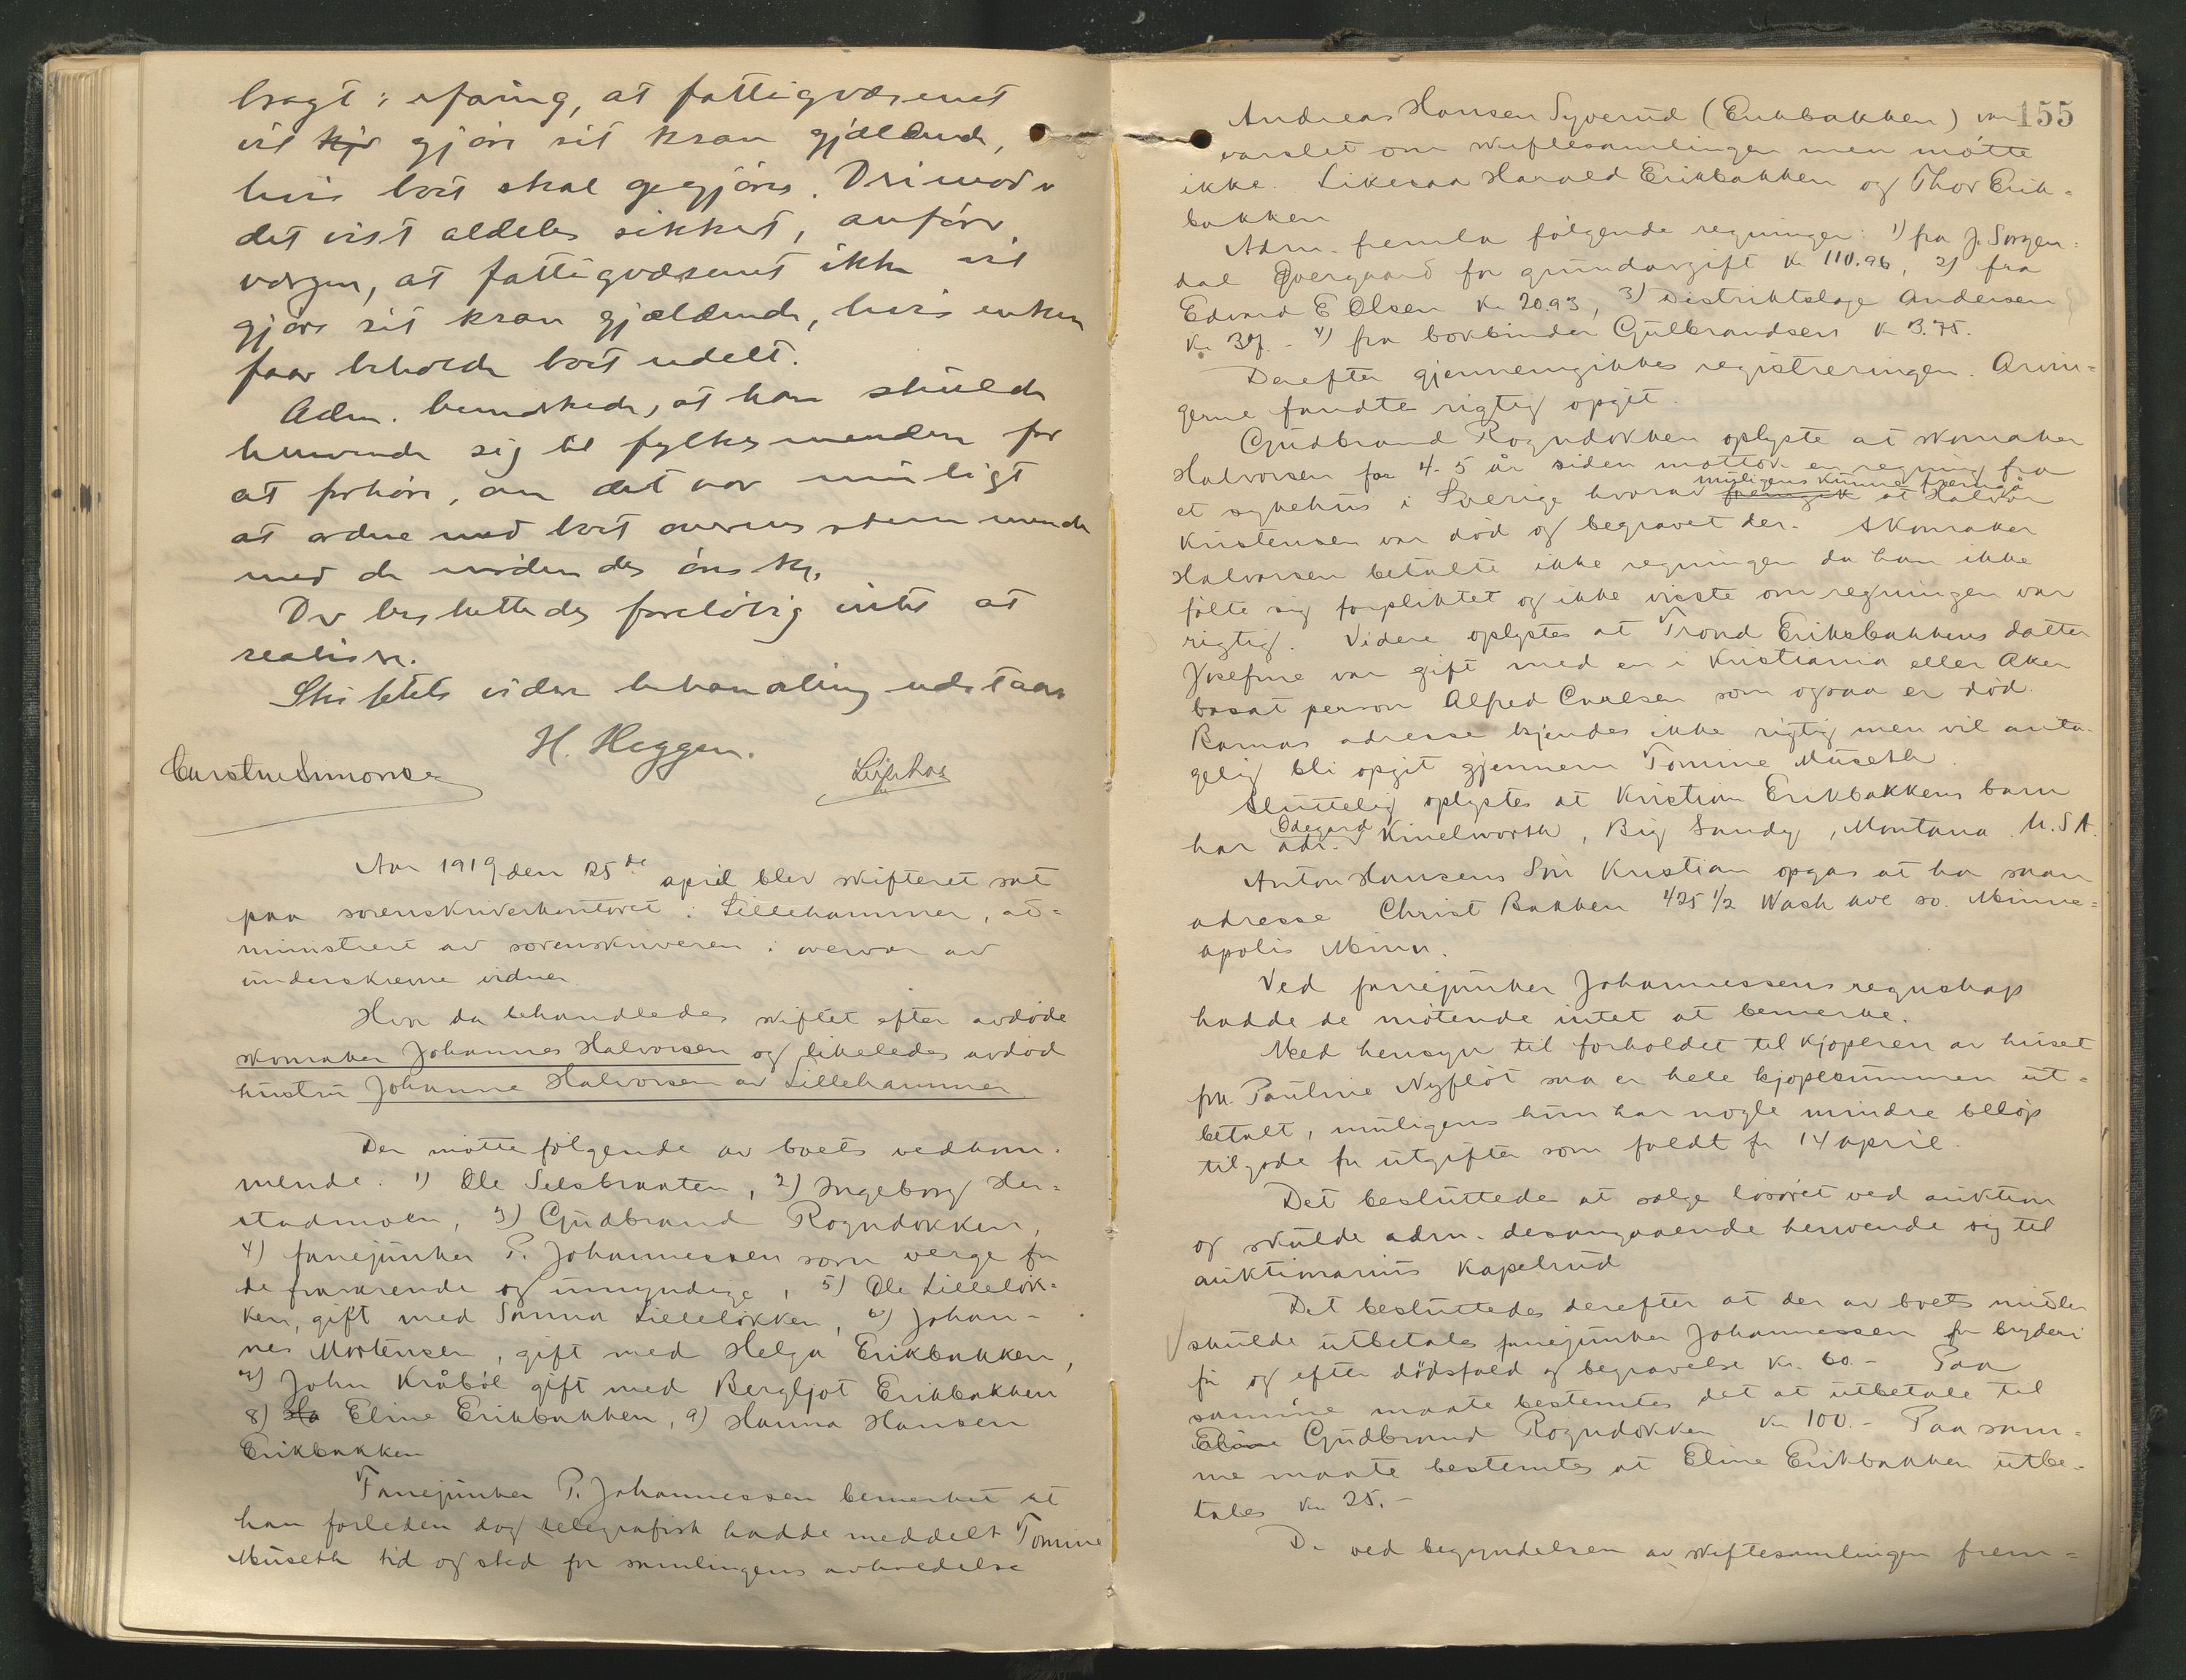 bragt i erfaring, at fattigvæsenet
vil kjr gjøre sit krav gjældende,
hvis boet skal opgjøres. Derimod er
det vist aldeles sikkert, anfører
værgen, at fattigvæsenet ikke vil
gjøre sit krav gjældende, hvis enken
faar beholde boet udelt.
Adm. bemærkede, at han skulde
henvende sig til fylkesmanden for
at forhøre, om det var muligt
at ordne med boet overensstemmende
med de mødendes ønske.
Der besluttedes foreløbig intet at
realisere.
Skiftets videre behandling udstaar
H. Heggen.
Carsten Simonsen
Aar 1919 den 25de april blev skifteret sat
paa sorenskriverkontoret i Lillehammer, ad-
ministrert av sorenskriveren i overvær av
underskrevne vidner
Hvor da behandledes skiftet efter avdøde
skomaker Johannes Halvorsen og likeledes avdød
hustru Johanne Halvorsen av Lillehammer
Der møtte følgende av boets vedkom-
mende: 1) Ole Selsbraaten, 2) Ingeborg Her-
stadmoen, 3) Gudbrand Rogndokken,
4) fanejunker P. Johannessen som verge for
de fraværende og umyndige, 5) Ole Lilleløk-
ken, gift med Sanna Lilleløkken, 6) Johan-
nes Mortensen, gift med Helga Erikbakken,
7) John Kråbøl gift med Bergljot Erikbakken
8) Ha Eline Erikbakken, 9) Hanna Hansen
Erikbakken
Fanejunker P. Johannessen bemerket at
han forleden dag telegrafisk hadde meddelt Tomine
Museth tid og sted for samlingens avholdelse
155
Andreas Hansen Syverud (Erikbakken) var
varslet om skiftesamlingen men møtte
ikke. Likesaa Harald Erikbakken og Thor Erik-
bakken
Adm. fremla følgende regninger: 1) fra J. Sorgen-
dal Overgaard for grundavgift kr 110.96, 2) fra
Edvard E Olsen kr 20.93, 3) Distriktslæge Andersen
kr 37.- 4) fra bokbinder Gulbrandsen kr 3.75.
Derefter gjennemgikkes registreringen. Arvin-
gerne fandtes rigtig opgit.
Gudbrand Rogndokken oplyste at skomaker
Halvorsen for 4-5 år siden mottok en regning fra
muligens kunne fremgå
et sykehus i Sverige hvorav fremgik at Halvor
Kristensen var død og begravet der. Skomaker
Halvorsen betalte ikke regningen da han ikke
følte sig forpliktet og ikke visste om regningen var
rigtig. Videre oplystes at Trond Eriksbakkens datter
Josefine var gift med en i Kristiania eller Aker
bosat person Alfred Carlsen som ogsaa er død.
Barnas adresse kjendes ikke rigtig men vil anta-
gelig bli opgit gjennem Tomine Museth.
Sluttelig oplystes at Kristian Erikbakkens barn
Odegard
har adr. Kinelworth, Big Sandy, Montana U.S.A.
Anton Hansens Søn Kristian opgas at ha saan
adresse Christ Bakken 425 1/2 Wash ave so. Minne-
apolis Minn.
Ved fanejunker Johannessens regnskap
hadde de møtende intet at bemerke.
Med hensyn til forholdet til kjøperen av huset
frk. Pauline Nyfløt saa er hele kjøpesummen ut-
betalt, muligens hun har nogle mindre beløp
tilgode for utgifter som faldt før 14 april.
Det besluttedes at sælge løsøret ved auktion
og skulde adm. desangaaende henvende sig til
auktionarius Kapelrud
Det besluttedes derefter at der av boets midler
skulde utbetales fanejunker Johannessen for bryderi
før og efter dødsfald og begravelse kr. 60.- Paa
samme maate bestemtes det at utbetale til
Eline Gudbrand Rogndokken kr 100.- Paa sam-
me maate bestemtes at Eline Erikbakken utbe-
tales kr 25.-
De ved begyndelsen av skiftesamlingen frem-